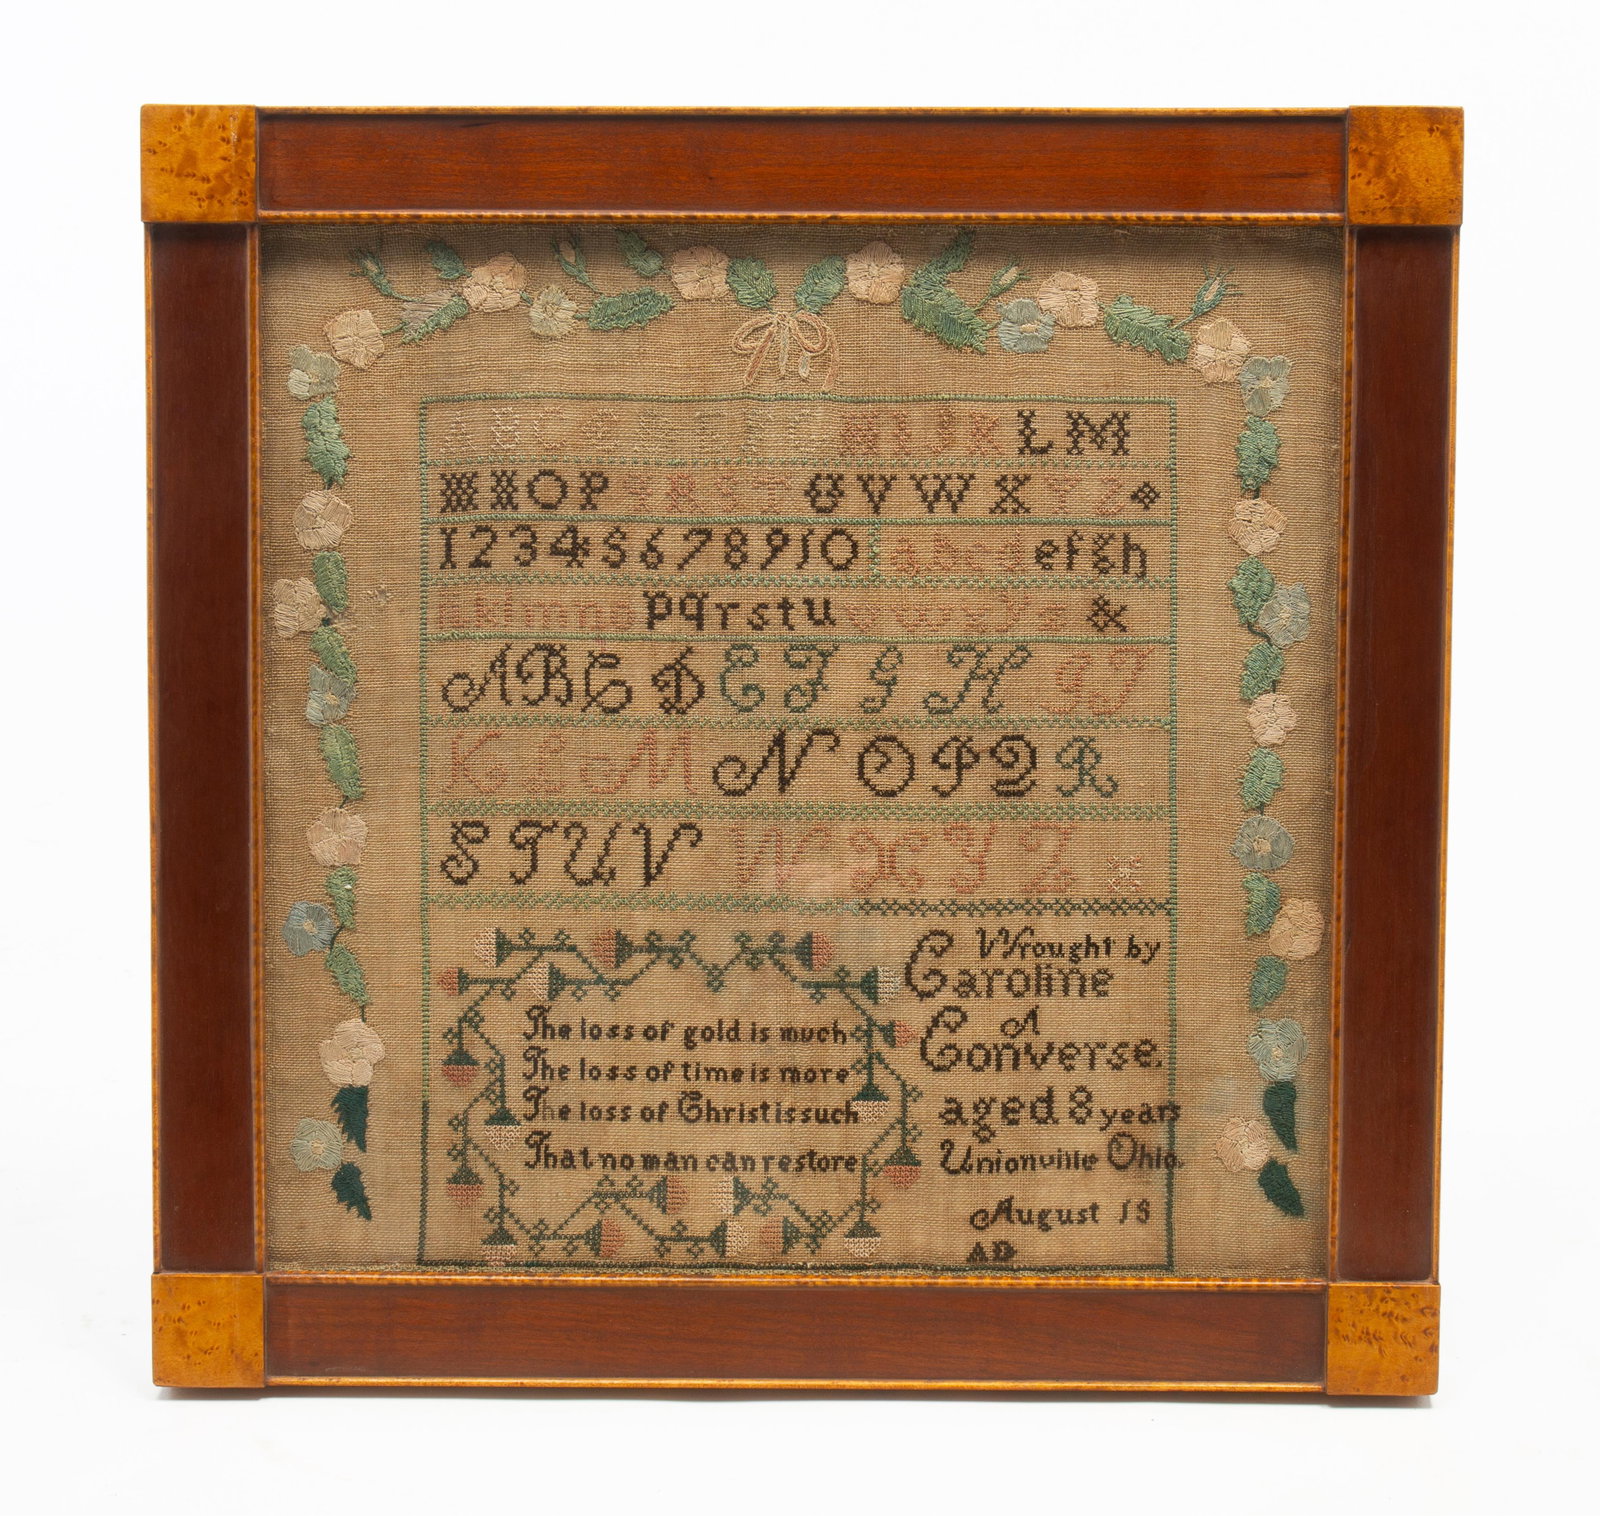 A B C D E F G H I J K L M
N O P Q R S T U V W X Y Z
1 2 3 4 5 6 7 8 9 10 a b c d e f g h
i k l m n o p q r s t u v w x y z &
A B C D E F G H I J
K L M N O P Q R
S T U V W X Y Z
The loss of gold is much
The loss of time is more
The loss of Christ is such
That no man can restore
Wrought by
Caroline
A
Converse.
aged 8 years
Unionville Ohio.
August 18
AD